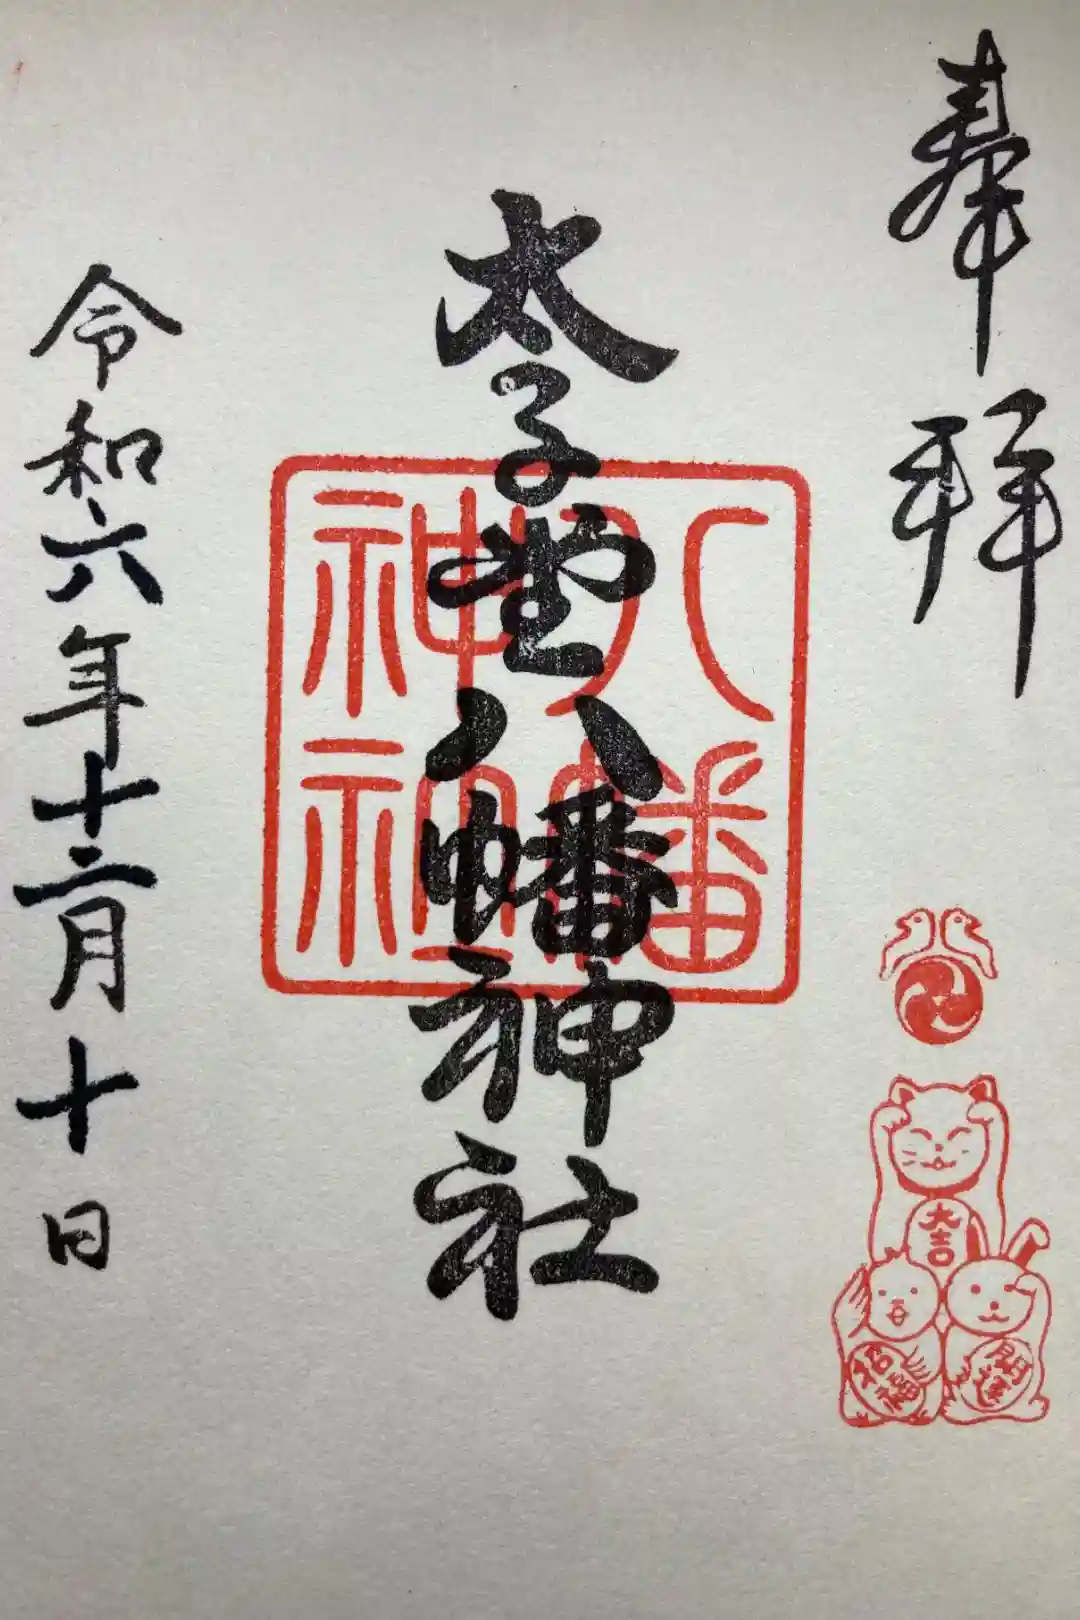 奉拝
八幡
神社
太子堂八幡神社
令和六年十二月十日
大吉
開運
招福